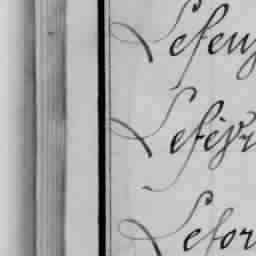 Lefeu
Lefevr
Lefor